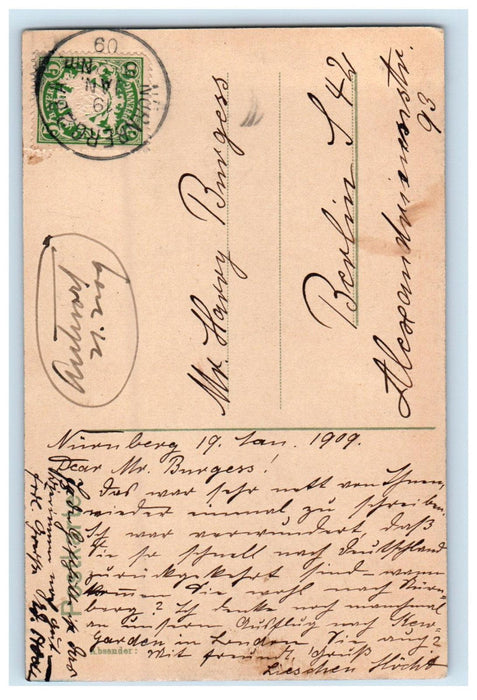 NÜRNBERG
19
JAN
09
Mr. Harry Burgess
Berlin S 42
Alexandrinenstr.
93
Antwort
21. 1. 09
Postkarte
Absender:
Nürnberg 19. Jan. 1909.
Dear Mr. Burgess!
Das war sehr nett von Ihnen
wieder einmal zu schreiben
Ich war verwundert daß
Sie so schnell nach Deutschland
zurückgekehrt sind – wann
kommen Sie wohl nach Nürn-
berg? Ich denke noch manchmal
an unsern Ausflug nach Kew-
garden in London. Sie auch?
Mit freundl. Gruß
Lieschen Höcht